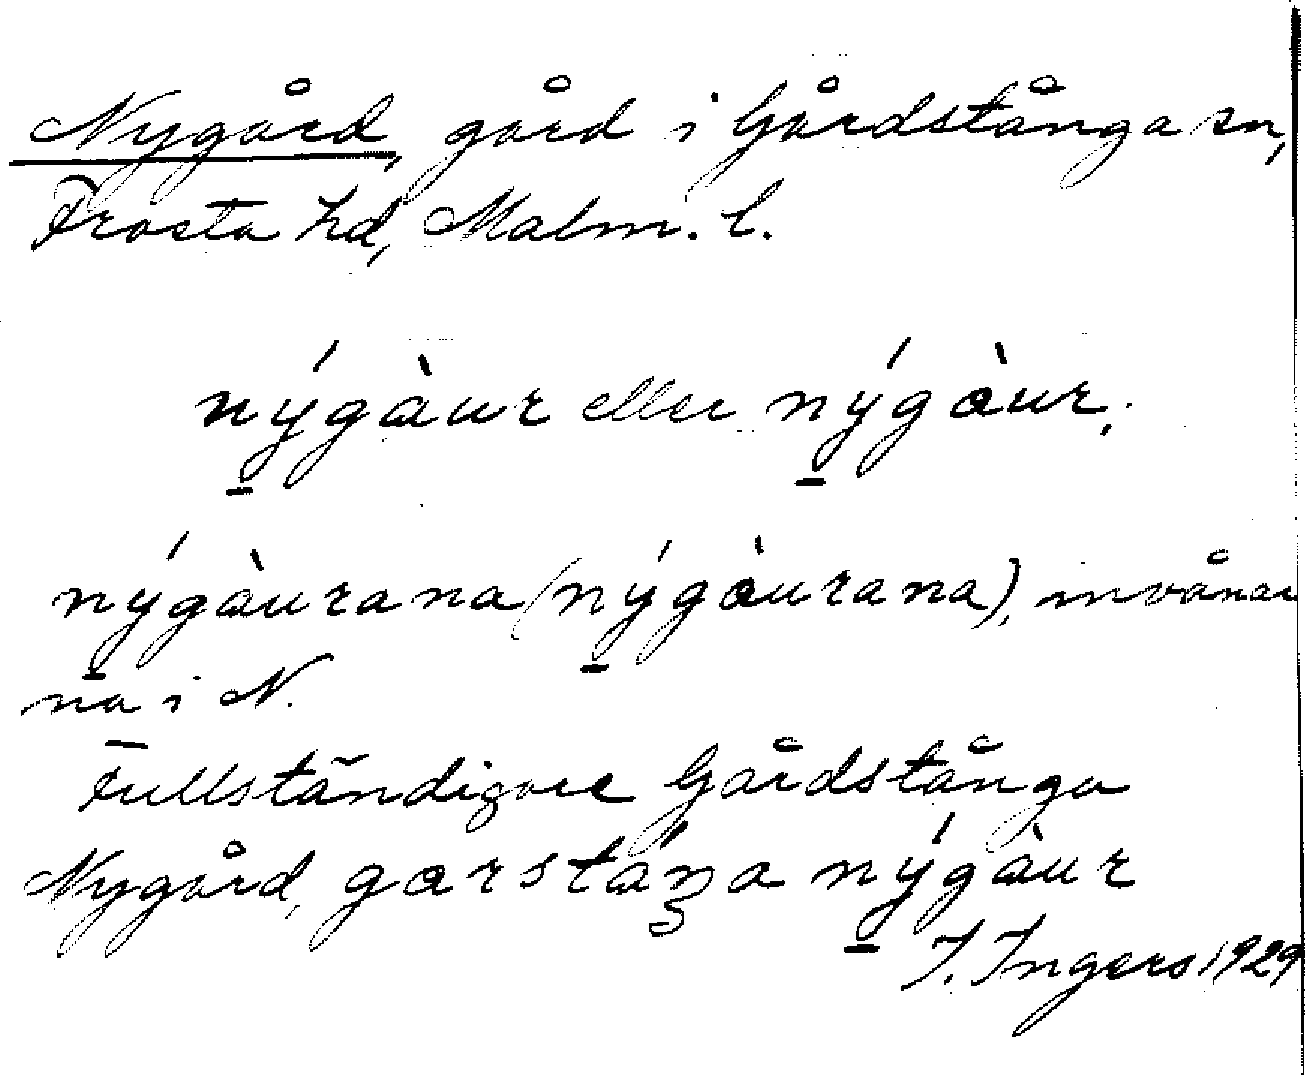 Nygård, gård i Gårdstånga sn,
Frosta hd, Malm. l.
ný̲gàur eller ný̲gàur,
ný̲gàurana (ný̲gàurana), invånar
na i N.
Fullständigare Gårdstånga
Nygård, garstáŋa ný̲gàur
I. Ingers 1929